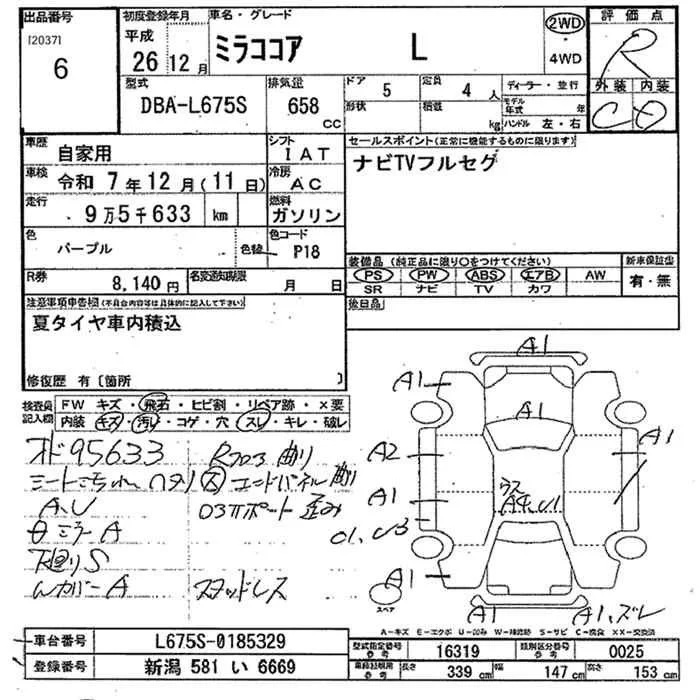 出品番号 [2037] 6
初度登録年月 平成 26 12 月
車名・グレード ミラココア L
2WD ・ 4WD
評価点 R
外装 内装 C D
型式 DBA-L675S
排気量 658 CC
ドア 5 定員 4 人
形状 積載 kg
ディーラー・並行
モデル年式 年
ハンドル 左・右
車歴 自家用
シフト I A T
車検 令和 7 年 12 月 (11 日)
冷房 A C
走行 9 万 5 千 633 km
燃料 ガソリン
色 パープル 色替
色コード P18
R券 8,140 円
名変通知期限 月 日
セールスポイント(正常に機能するものに限ります)
ナビTVフルセグ
装備品 (純正品に限り○をつけてください)
PS PW ABS エアB AW
SR ナビ TV カワ
新車保証書 有・無
後日品
注意事項申告欄 (不具合内容等は具体的に記入して下さい)
夏タイヤ車内積込
修復歴 有 〔箇所 〕
検査員記入欄
FW キズ・飛石・ヒビ割・リペア跡・×要
内装 キズ・汚れ・コゲ・穴・スレ・キレ・破レ
95633
シートこ
A、U
ミラー A
下廻り S
Wカバー A
曲り
ポート 歪み
スタッドレス
A1
A1
A1
A2
A1
A1
A1
A1
A1
スペア
A=キズ E=エクボ U=凹み W=補修跡 S=サビ C=腐食 XX=交換済
車台番号 L675S-0185329
登録番号 新潟 581 い 6669
型式指定番号 参考 16319
類別区分番号 参考 0025
車検証明用 参考 長さ 339 cm 幅 147 cm 高さ 153 cm